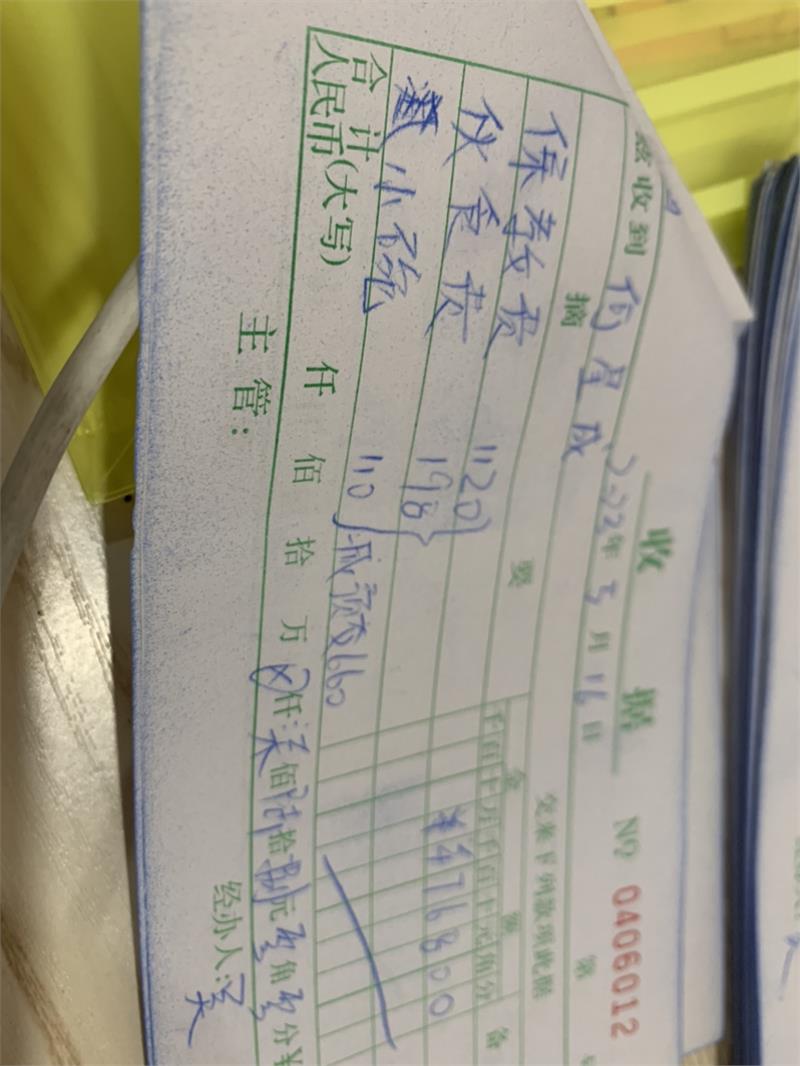 收 据
NO 0406012
2022年3月16日
兹收到 向星成 交来下列款项此据
摘 要 金 额 备
千百十万千百十元角分
保教费 1120
伙食费 198 ¥476800
小碗 110 减预交660
合 计
人民币(大写) 仟 佰 拾 万 仟柒佰陆拾捌元零角零分¥
主 管: 经办人:吴